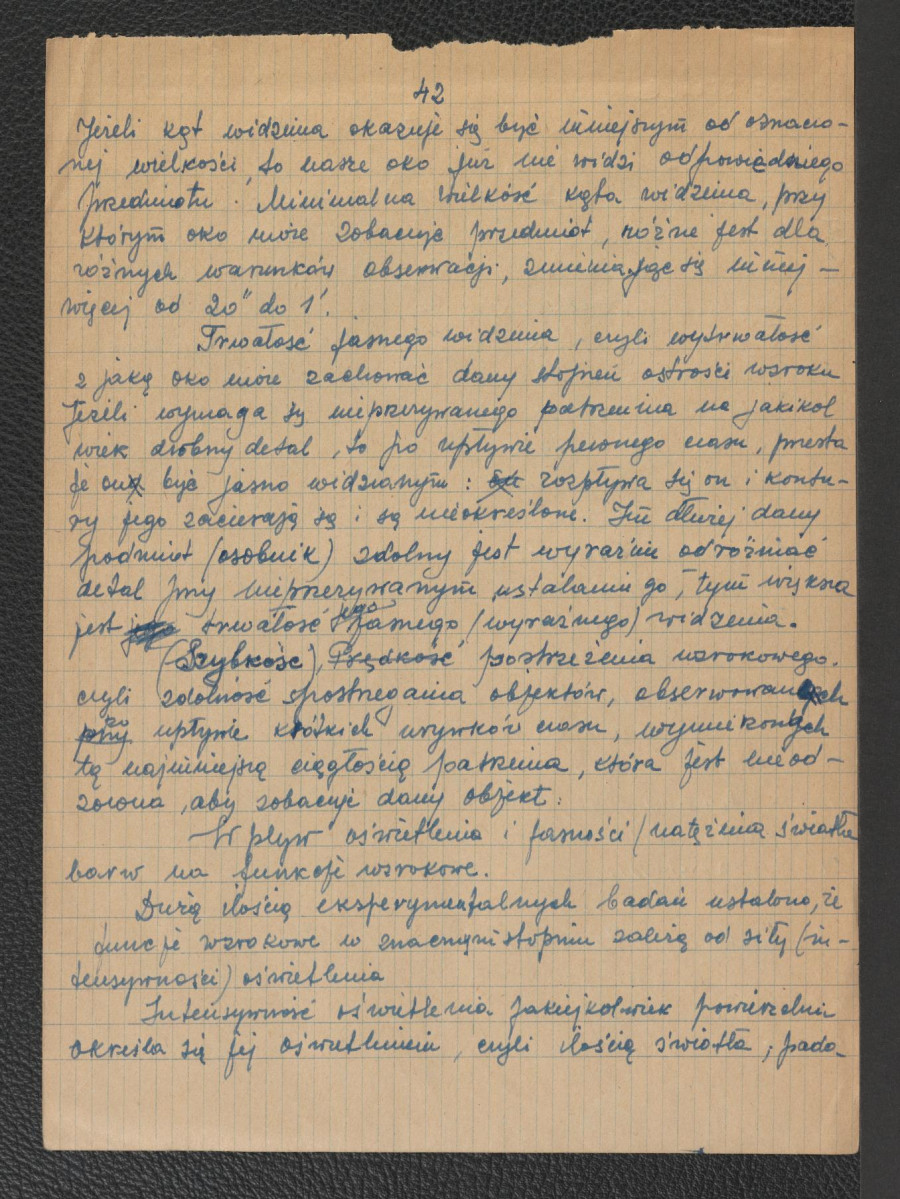 42
Jeżeli kąt widzenia okazuje się być mniejszym od oznaczo-
nej wielkości, to nasze oko już nie widzi odpowiedniego
przedmiotu. Minimalna wielkość kąta widzenia, przy
którym oko może zobaczyć przedmiot, różne jest dla
różnych warunków obserwacji, zmieniając się mniej –
więcej od 20" do 1'.
Trwałość jasnego widzenia, czyli wytrwałość
z jaką oko może zachować dany stopień ostrości wzroku
Jeżeli wymaga się nieprzerywanego patrzenia na jakikol
wiek drobny detal, to po upływie pewnego czasu, przesta
je być jasno widzianym: rozpływa się on i kontu-
ry jego zacierają się i są nieokreślone. Im dłużej dany
podmiot (osobnik) zdolny jest wyraźnie odróżniać
detal przy nieprzerywanym ustalaniu go, tym większa
jest trwałość jego jasnego (wyraźnego) widzenia.
(Szybkość), Prędkość postrzeżenia wzrokowego.
czyli zdolność spostrzegania objektów, obserwowanych
po upływie krótkich urywków czasu,
tą najmniejszą ciągłością patrzenia, która jest nieod-
zowna, aby zobaczyć dany objekt.
Wpływ oświetlenia i jasności (natężenia światła
barw na funkcje wzrokowe.
Dużą ilością eksperymentalnych badań ustalono, że
funcje wzrokowe w znacznym stopniu zależą od siły (in-
tensywności) oświetlenia
Intensywność oświetlenia jakiejkolwiek powierzchni
określa się jej oświetleniem, czyli ilością światła, pada-